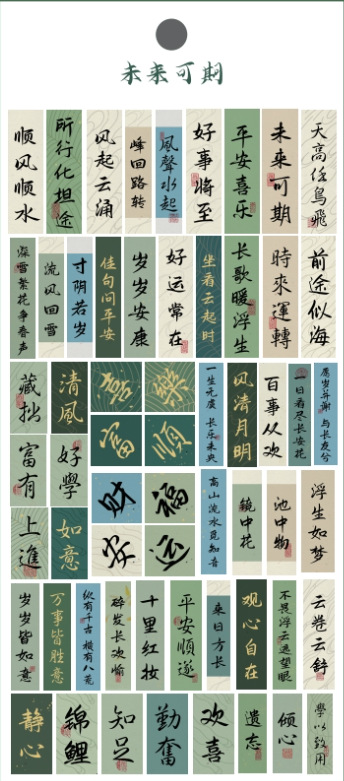 未来可期
顺风顺水
所行化坦途
风起云涌
峰回路转
風聲水起
好事将至
平安喜乐
未来可期
天高任鸟飛
繁花争春声
流风回雪
寸阴若岁
佳句问平安
岁岁安康
好运常在
坐看云起时
长歌暖浮生
時來運轉
前途似海
藏拙
清風
喜
樂
富
順
一生无虞 长乐未央
风清月明
百事从欢
一日看尽长安花
愿岁并谢 与长友兮
富有
好學
财
福
安
运
高山流水觅知音
镜中花
池中物
浮生如梦
上進
如意
岁岁皆如意
万事皆胜意
纵有千古 横有八荒
长欢愉
十里红妆
平安順遂
来日方长
观心自在
不畏浮云遮望眼
云卷云舒
静心
锦鲤
知足
勤奮
欢喜
遗忘
倾心
学以致用